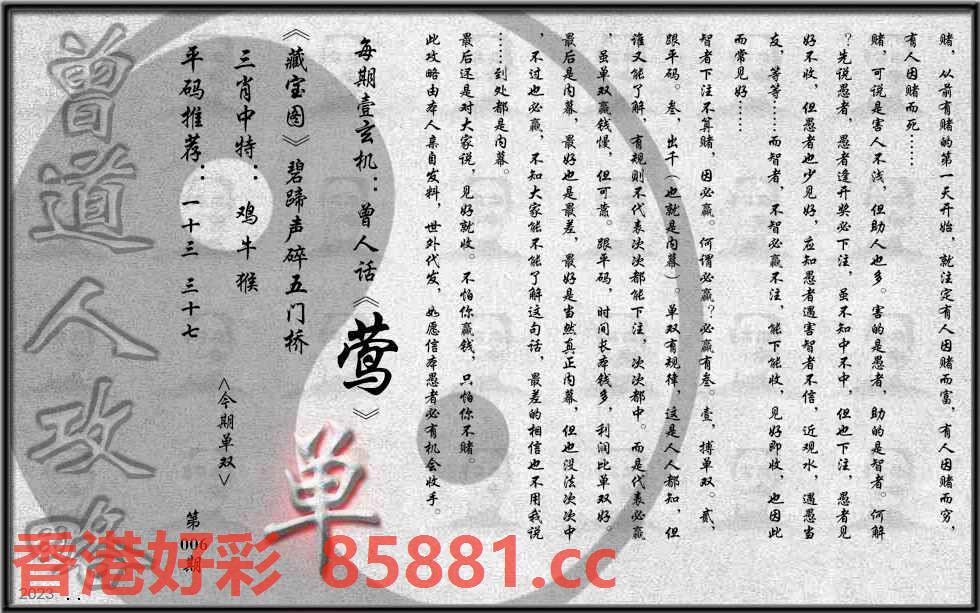 赌，从前有赌的第一天开始，就注定有人因赌而富，有人因赌而穷，
有人因赌而死……
赌，可说是害人不浅，但助人也多。害的是愚者，助的是智者。何解
？先说愚者，愚者逢开奖必下注，虽不知中不中，但也下注，愚者见
好不收，但愚者也少见好，应知愚者遇害智者不信，近观水，遇愚当
友，等等……而智者，不智必赢不注，能下能收，见好即收，也因此
而常见好……
智者下注不算赌，因必赢。何谓必赢？必赢有叁。壹，搏单双。贰，
跟平码。叁，出千（也就是内幕）。单双有规律，这是人人都知，但
谁又能了解，有规则不代表次次都能下注，次次都中。而是代表必赢
，虽单双赢钱慢，但可靠。跟平码，时间长本钱多，利润比单双好。
最后是内幕，最好也是最差，最好是当然真正内幕，但也没法次次中
，不过也必赢，不知大家能不能了解这句话，最差的相信也不用我说
……到处都是内幕。
最后还是对大家说，见好就收。不怕你赢钱，只怕你不赌。
此攻略由本人亲自发料，世外代发，如愿信本愚者必有机会收手。
每期壹玄机：曾人话《莺》
《藏宝图》碧蹄声碎五门桥
三肖中特：鸡牛猴
平码推荐：一十三 三十七
<今期单双>
单
第
006
期
曾道人攻略
香港好彩 85881.cc
2023